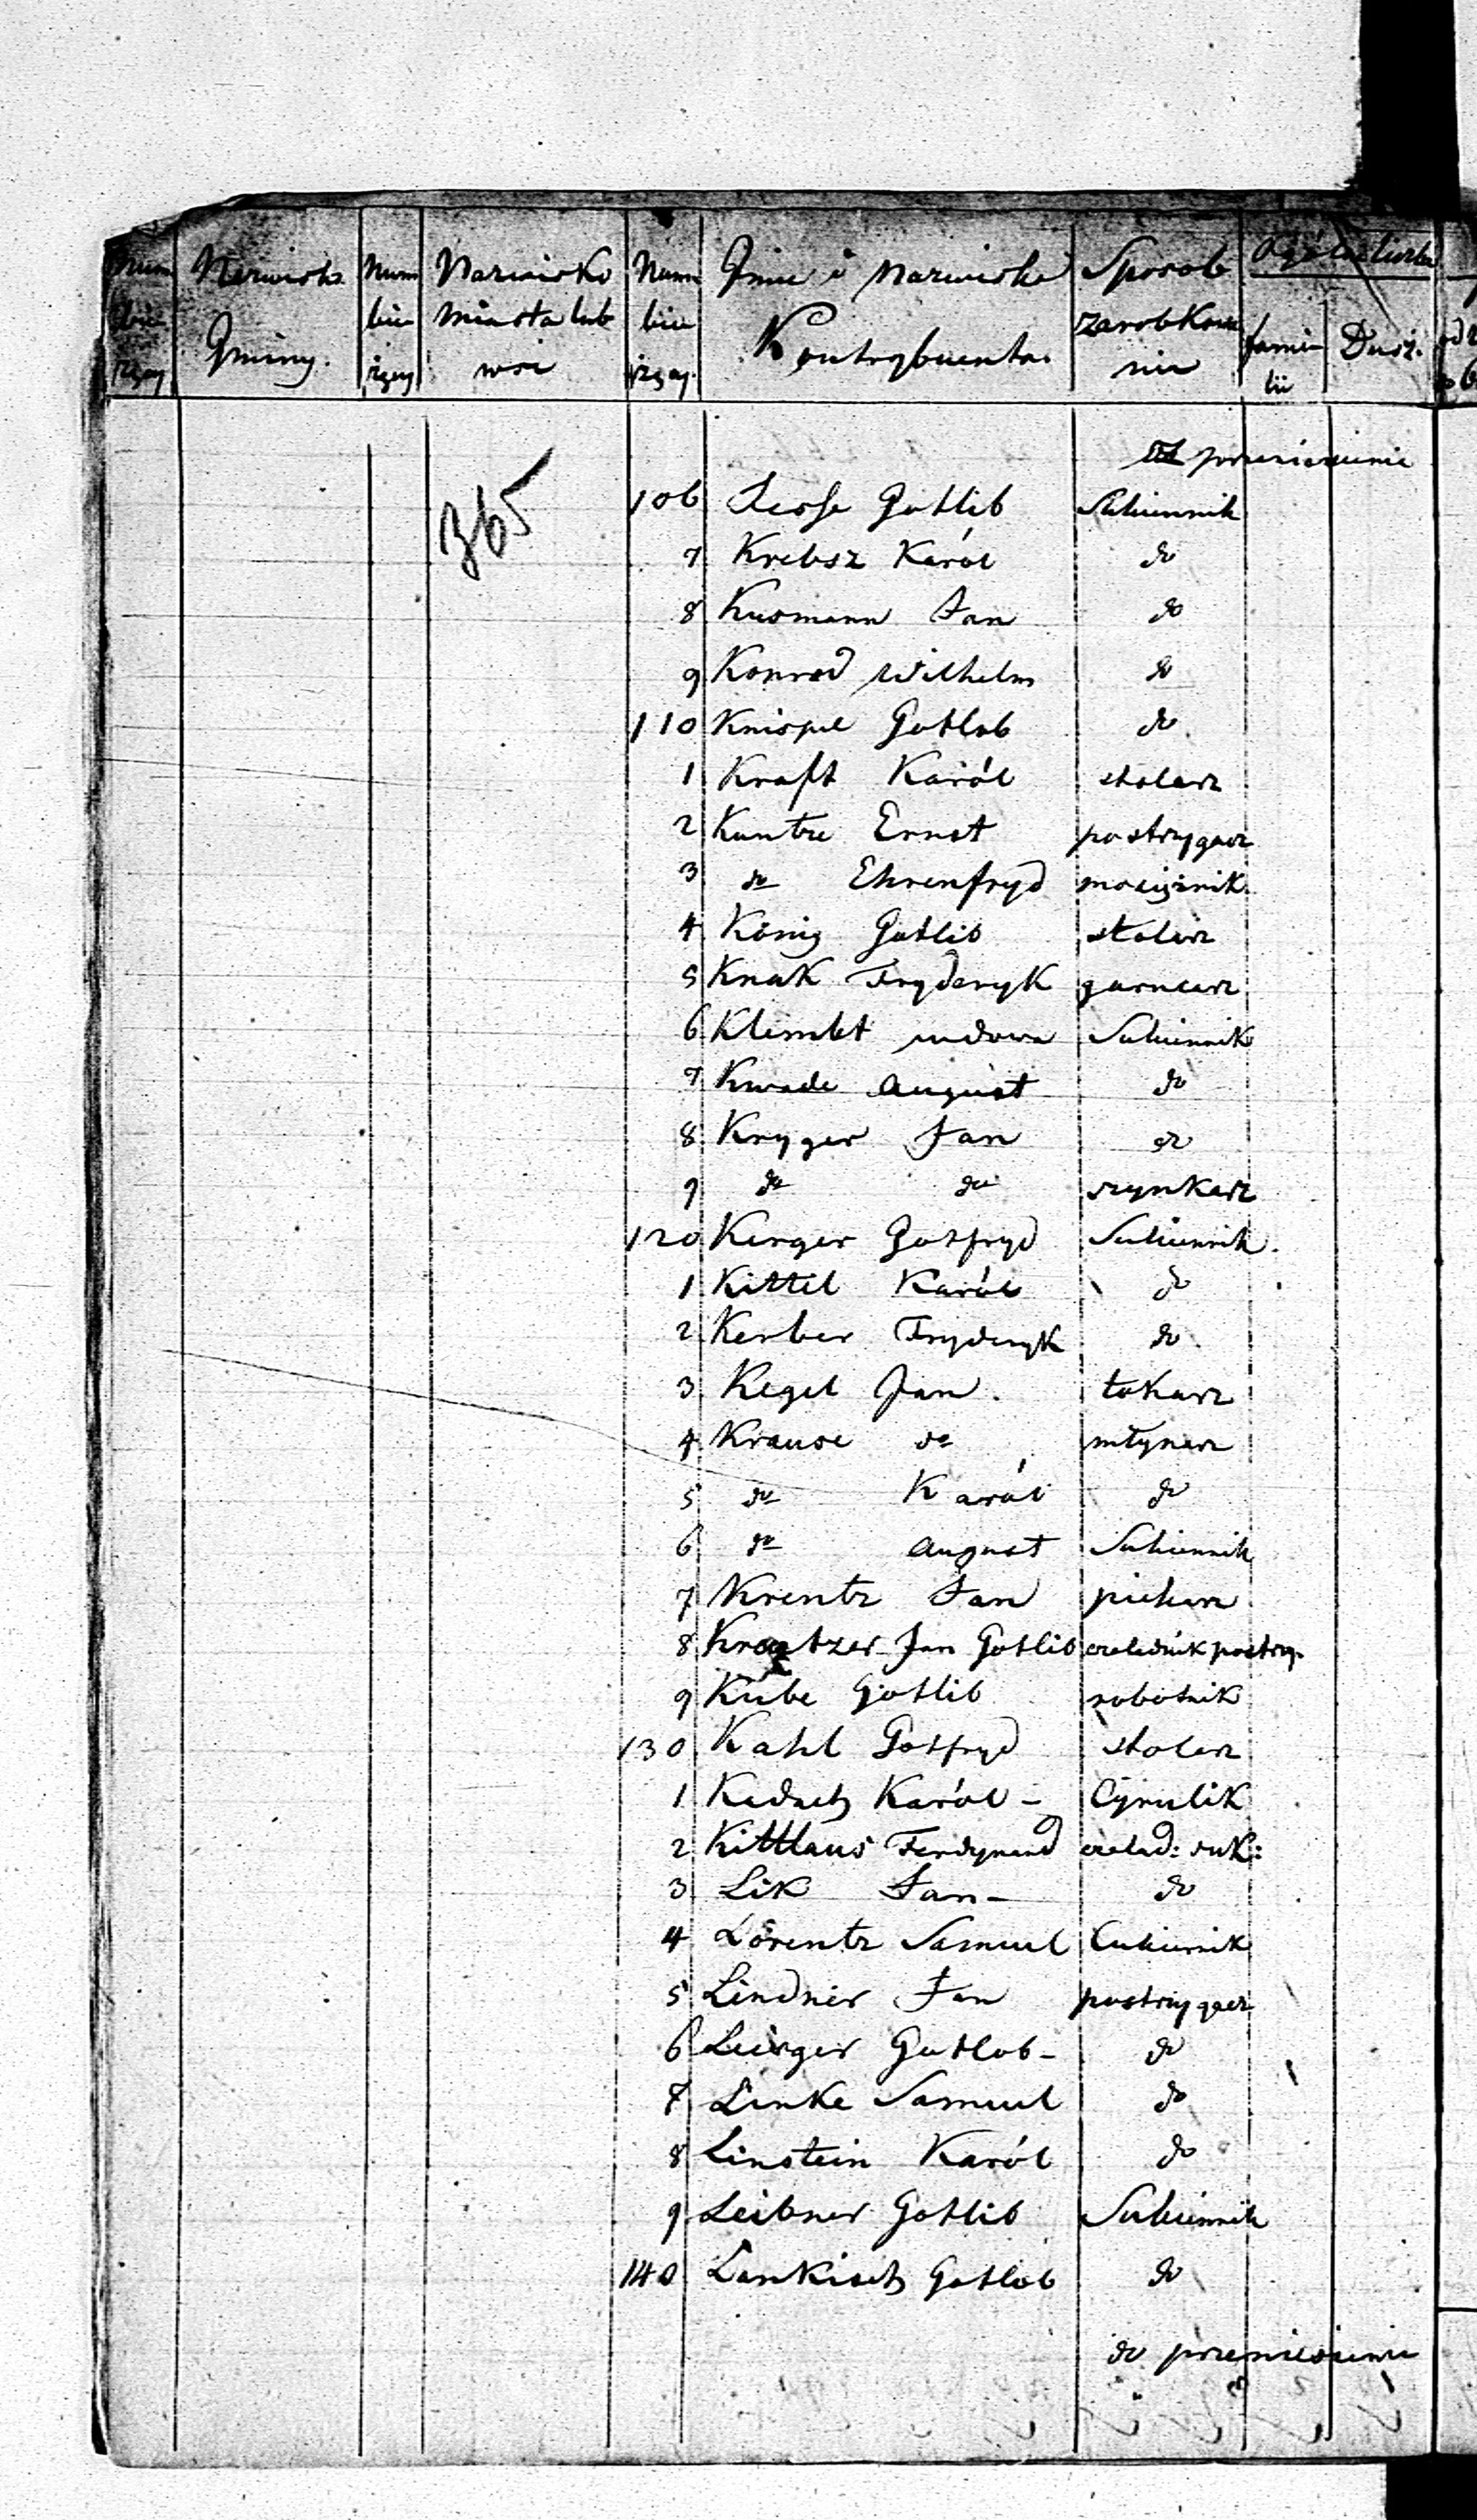 Num Nazwisko Num Nazwisko Num Jmie i Nazwisko Sposob Ogólna liczba
bie bie miasta lub bie Kontrybuenta zarobkowa
rzący Gminy. rzący wsi rzący. nia familii Dusz.
z przeniesienia
365
106 Gotlib Sukiennik
7 Krebsz Karól do
8 Kusmann Jan do
9 Konrad Wilhelm do
110 Knispel Gotlob do
1 Kraft Karól stolarz
2 Kuntze Ernst postrzygacz
3 do Ehrenfryd mosiężnik
4 König Gotlib stolarz
5 Knak Fryderyk garncarz
6 Klembt wdowa Sukiennik
7 Kwade August do
8 Kryger Jan do
9 do do szynkarz
120 Kerger Gotfryd Sukiennik.
1 Kittel Karól do
2 Kerber Fryderyk do
3 Kegel Jan. tokarz
4 Krause do młynarz
5 do Karól do
6 do August Sukiennik
7 Krentz Jan piekarz
8 Jan Gotlib czeladnik postrzy.
9 Kube Gotlib robotnik
130 Kahl Gotfryd stolarz
1 Karól - Cyrulik
2 Kittlaus Ferdynand czelad: suk:
3 Lik Jan - do
4 Lorentz Samuel Cukiernik
5 Lindner Jan postrzygacz
6 Gotlob - do
7 Linke Samuel do
8 Linstein Karól do
9 Leibner Gotlib Sukiennik
140 Lankisch Gotlob do
do przeniesienia